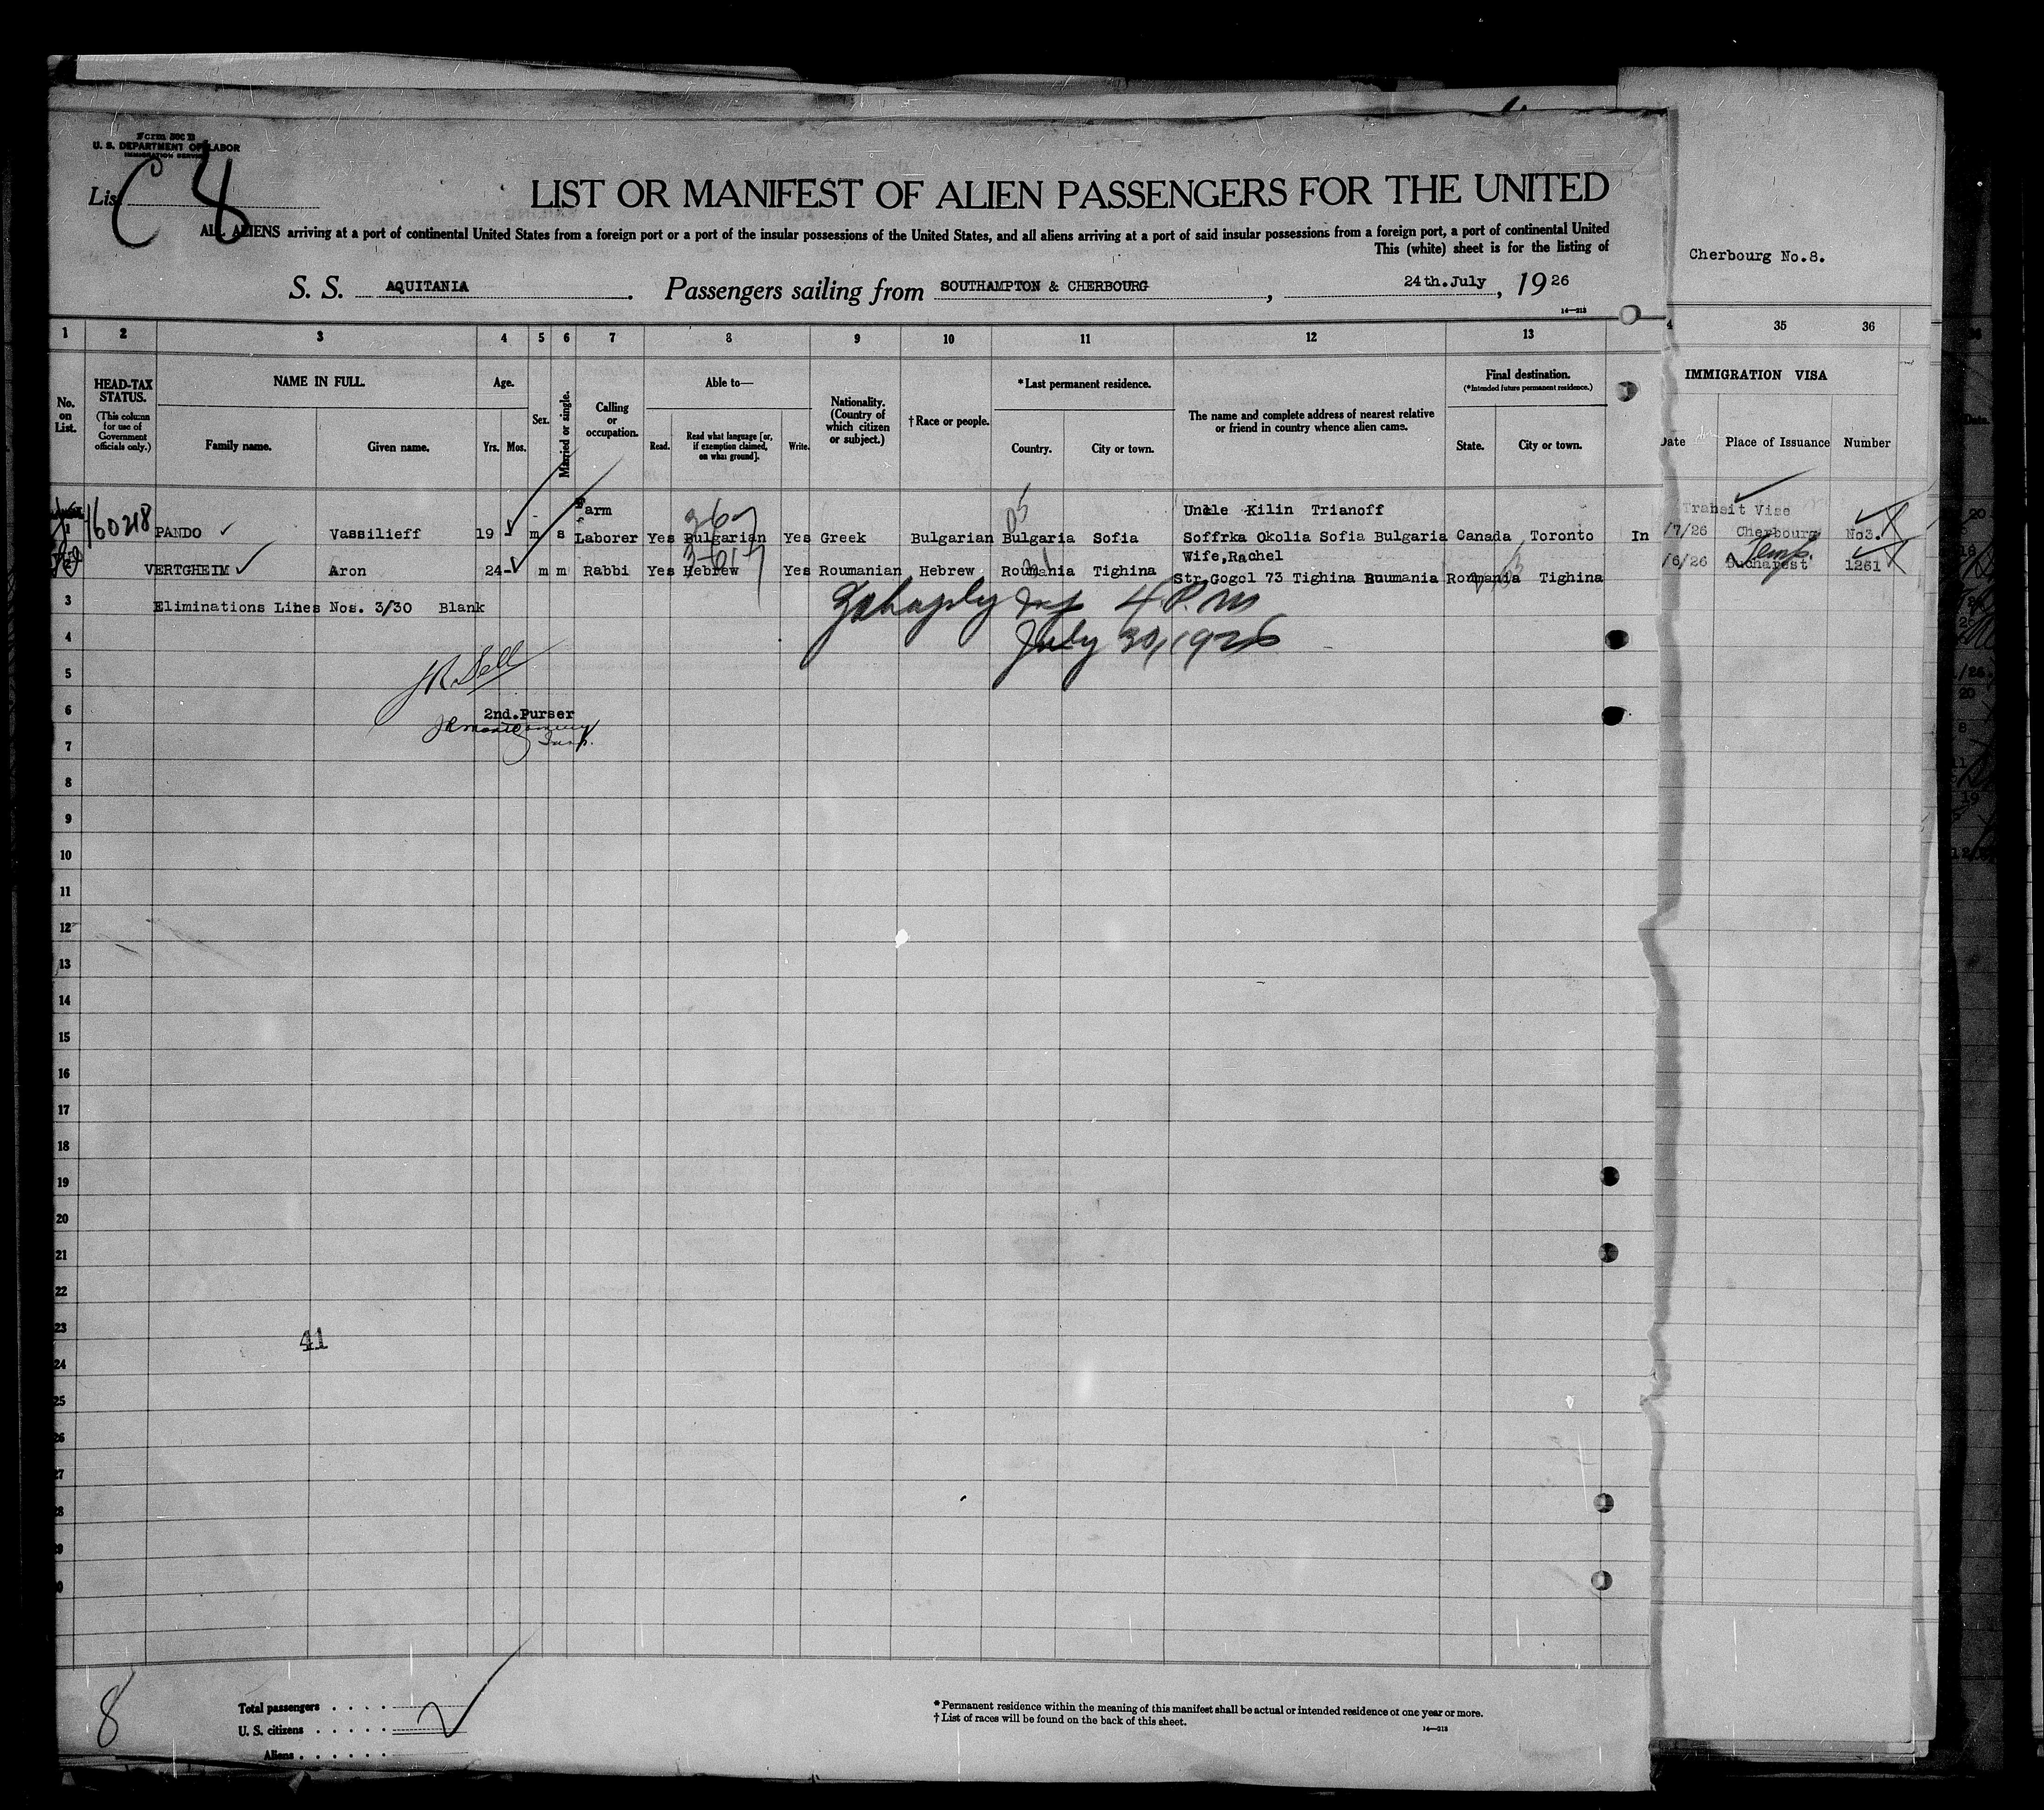 Form 500 B
U. S. DEPARTMENT OF LABOR
IMMIGRATION SERVICE
List
C 8
LIST OR MANIFEST OF ALIEN PASSENGERS FOR THE UNITED
ALL ALIENS arriving at a port of continental United States from a foreign port or a port of the insular possessions of the United States, and all aliens arriving at a port of said insular possessions from a foreign port, a port of continental United
This (white) sheet is for the listing of
Cherbourg No.8.
S. S. AQUITANIA. Passengers sailing from SOUTHAMPTON & CHERBOURG, 24th.July, 1926
14—213
1 2 3 4 5 6 7 8 9 10 11 12 13 4 35 36
No. on List.
HEAD-TAX STATUS.
(This column for use of Government officials only.)
NAME IN FULL.
Family name. Given name.
Age.
Yrs. Mos.
Sex.
Married or single.
Calling or occupation.
Able to—
Read. Read what language [or, if exemption claimed, on what ground]. Write.
Nationality. (Country of which citizen or subject.)
† Race or people.
*Last permanent residence.
Country. City or town.
The name and complete address of nearest relative or friend in country whence alien came.
Final destination.
(*Intended future permanent residence.)
State. City or town.
IMMIGRATION VISA
Date Place of Issuance Number
Farm Uncle Kilin Trianoff Transit Vise
160218 PANDO Vassilieff 19 m s Laborer Yes Bulgarian Yes Greek Bulgarian Bulgaria Sofia Soffrka Okolia Sofia Bulgaria Canada Toronto In /7/26 Cherbourg No3.
Wife,Rachel Temp.
VERTGHEIM Aron 24- m m Rabbi Yes Hebrew Yes Roumanian Hebrew Roumania Tighina Str.Gogol 73 Tighina Roumania Roumania Tighina /6/26 Bucharest 1261
3 Eliminations Lines Nos. 3/30 Blank
4 P.M
4
July 30, 1926
5
J R Bell
6 2nd.Purser
7 Insp.
8
9
10
11
12
13
14
15
16
17
18
19
20
21
22
23
41
24
25
26
27
28
29
30
8
Total passengers . . . .
U. S. citizens . . . . .
Aliens . . . . . .
* Permanent residence within the meaning of this manifest shall be actual or intended residence of one year or more.
† List of races will be found on the back of this sheet.
14—213